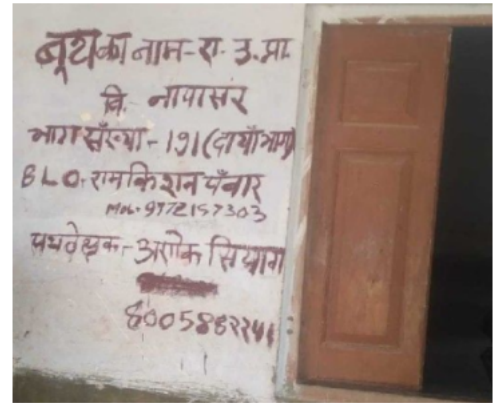 बूथ का नाम-रा. उ. प्रा.
वि. नापासर
भाग संख्या - 191 (दायाँ भाग)
BLO. रामकिशन पँवार
Mob. 9772157303
पर्यवेक्षक - अशोक सियाग